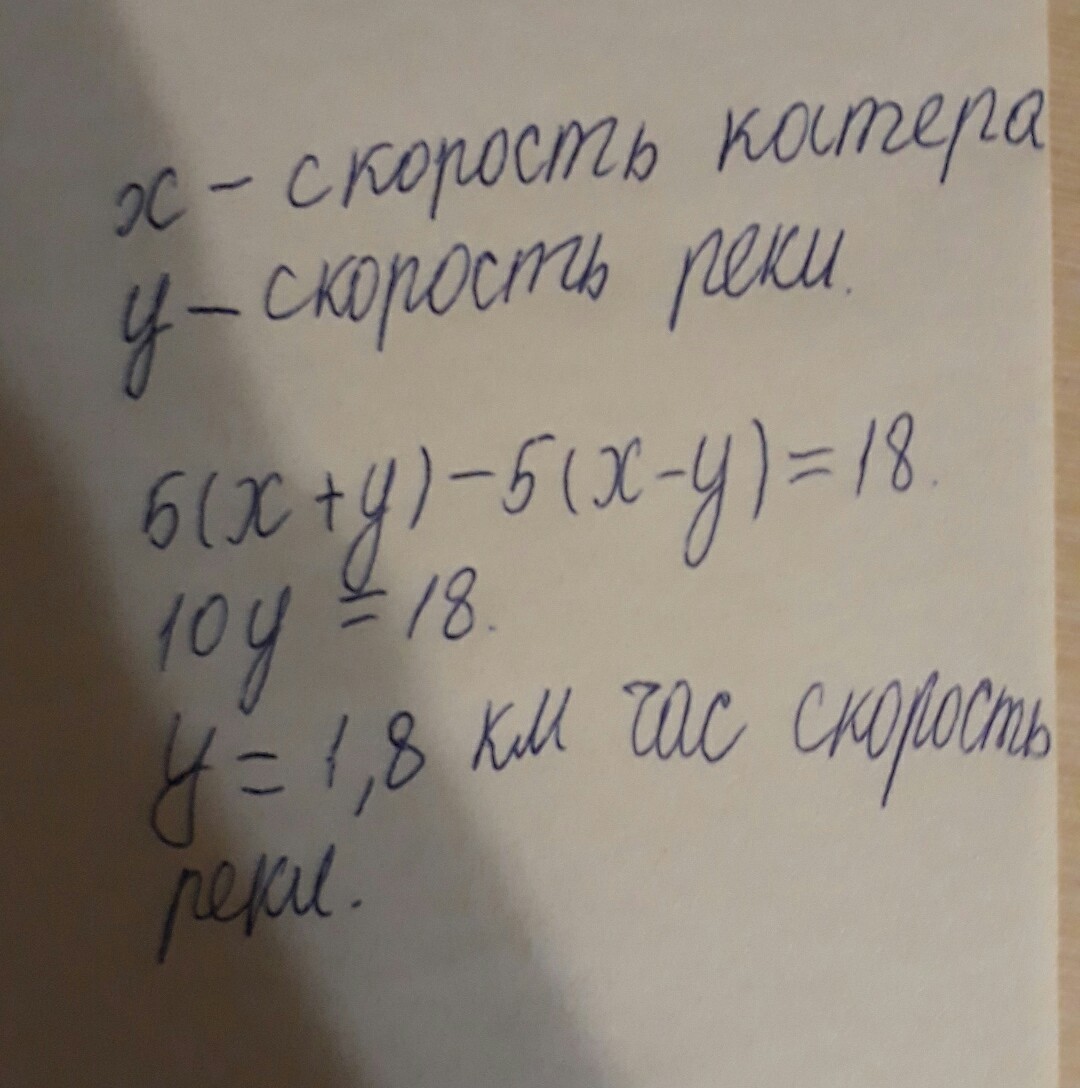 x - скорость катера
y - скорость реки.
5(x+y)-5(x-y)=18.
10y = 18.
y = 1,8 км час скорость
реки.